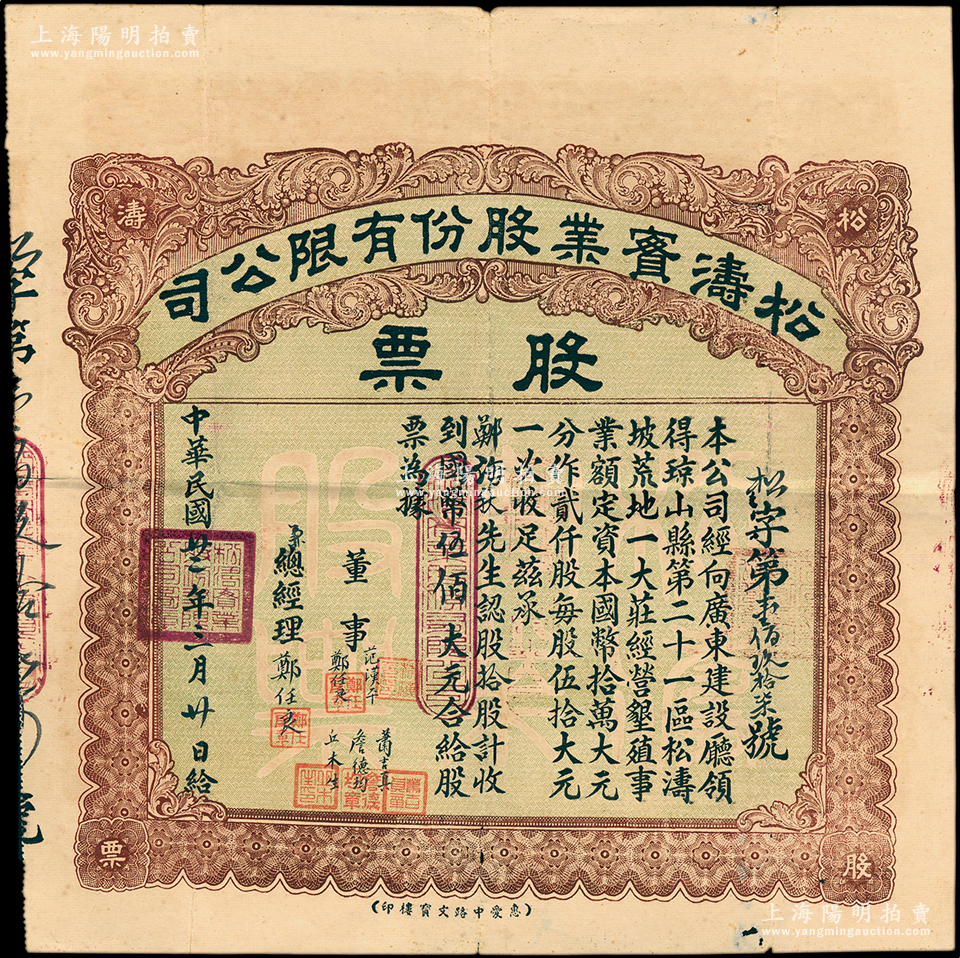 上海陽明拍賣
www.yangmingauction.com
松
濤
松濤實業股份有限公司
股票
松字第壹佰玖拾柒號
本公司經向廣東建設廳領
得琼山縣第二十一區松濤
坡荒地一大莊經營墾殖事
業額定資本國幣拾萬大元
分作貳仟股每股伍拾大元
一次收足茲承
鄭 先生認股拾股計收
到國幣伍佰大元合給股
票為據
董事
范漢
鄭任良
蕭吉真
詹德均
丘木生
總經理 鄭任良
中華民國廿二年三月廿日給
上海陽明拍賣
www.yangmingauction.com
股
票
(惠愛中路文寶樓印)
上海陽明拍賣
www.yangmingauction.com